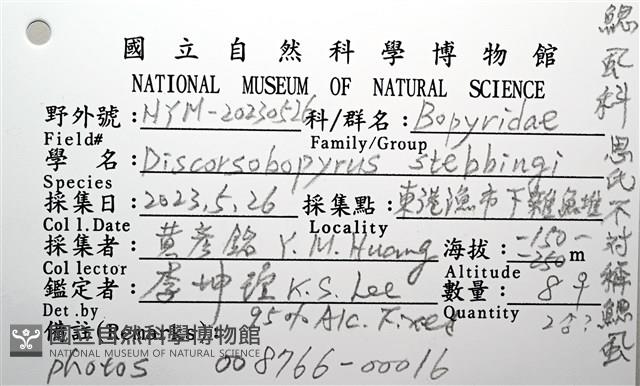 國立自然科學博物館
NATIONAL MUSEUM OF NATURAL SCIENCE
野外號:HYM-20230526 科/群名:Bopyridae
Field# Family/Group
學 名:Discorsobopyrus stebbingi
Species
採集日:2023.5.26 採集點:東港漁市下雜魚堆
Coll.Date Locality
採集者:黃彥銘 Y.M.Huang 海拔:-150- -250 m
Collector Altitude
鑑定者:李坤瑄 K.S.Lee 數量:8♀
Det.by 95% Alc. Fixed Quantity 2♂?
備註(Remarks):
photos 008766-00016
鰓虱科 恩氏不對稱鰓虱
國立自然科學博物館
NATIONAL MUSEUM OF NATURAL SCIENCE